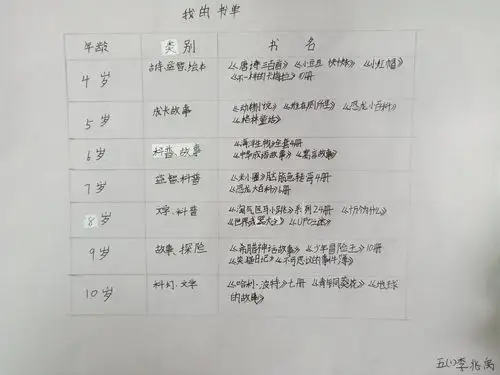 我的书单
年龄 类别 书名
4岁 古诗.益智.绘本 《唐诗三百首》《小豆豆 《小红帽》
《不一样的卡梅拉》
5岁 成长故事 《恐龙小百科》
《格林童话》
6岁 科普.故事 全套4册
《中华成语故事》《寓言故事》
7岁 益智.科普 《米小圈》 4册
《恐龙大百科》6册
8岁 文学.科普 《淘气包马小跳》系列24册 《十万个为什么》
《世界未解之谜》《UFO之谜》
9岁 故事.探险 《希腊神话故事》《少年冒险王》10册
《英雄日记》《不可思议的事件簿》
10岁 科幻.文学 《哈利·波特》七册 《青铜葵花》《地球
的故事》
五(1)李兆禹